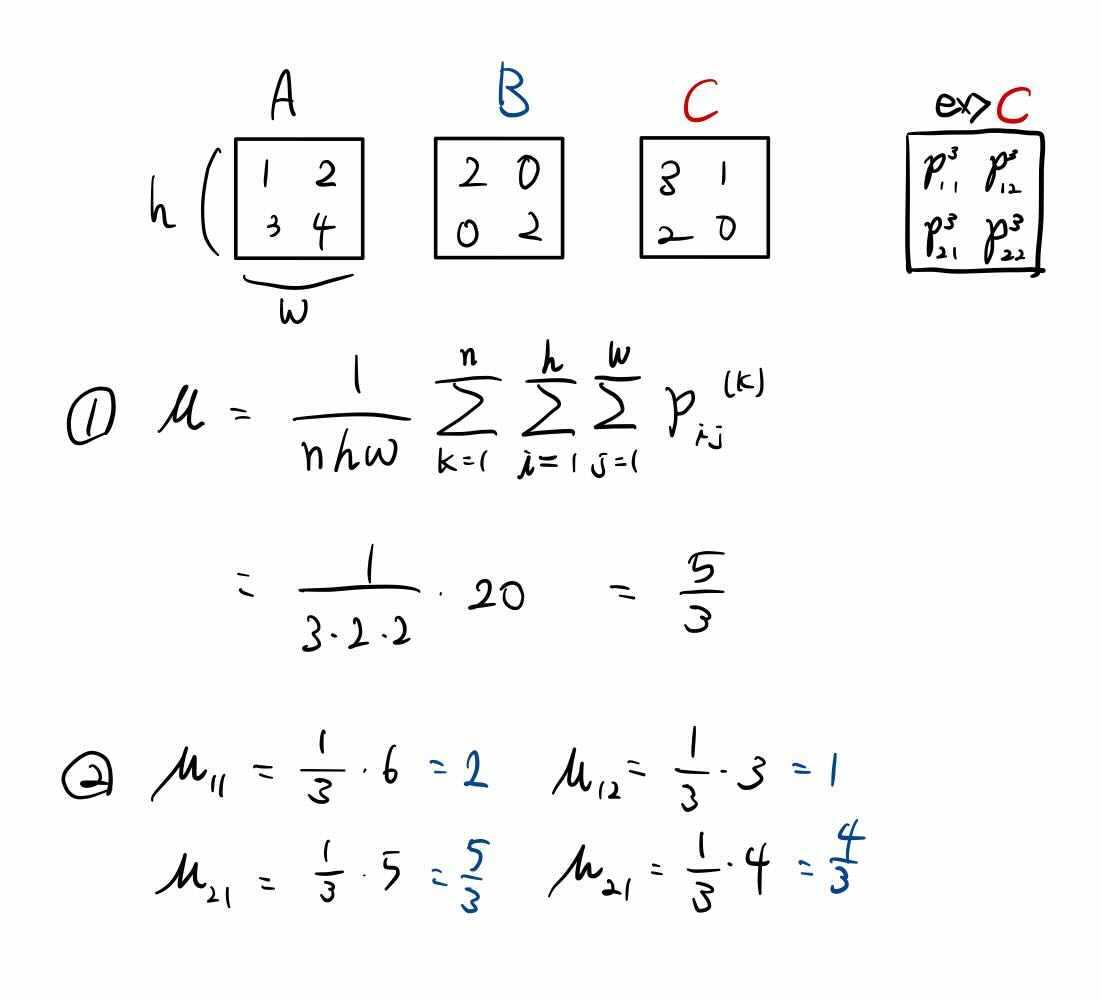 A B C ex> C
h ( 1 2 2 0 3 1 p³₁₁ p³₁₂
3 4 0 2 2 0 p³₂₁ p³₂₂
w
① μ = 1/(nhw) ∑_{k=1}^{n} ∑_{i=1}^{h} ∑_{j=1}^{w} p_{ij}^{(k)}
= 1/(3·2·2) · 20 = 5/3
② μ₁₁ = 1/3 · 6 = 2 μ₁₂ = 1/3 · 3 = 1
μ₂₁ = 1/3 · 5 = 5/3 μ₂₁ = 1/3 · 4 = 4/3